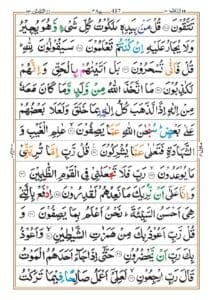 تَتَّقُوْنَ ۝ قُلْ مَنْۢ بِيَدِهٖ مَلَكُوْتُ كُلِّ شَيْءٍ وَّهُوَ يُجِيْرُ
وَلَا يُجَارُ عَلَيْهِ اِنْ كُنْتُمْ تَعْلَمُوْنَ ۝ سَيَقُوْلُوْنَ لِلّٰهِ ؕ
قُلْ فَاَنّٰى تُسْحَرُوْنَ ۝ بَلْ اَتَيْنٰهُمْ بِالْحَقِّ وَاِنَّهُمْ
لَكٰذِبُوْنَ ۝ مَا اتَّخَذَ اللّٰهُ مِنْ وَّلَدٍ وَّمَا كَانَ مَعَهٗ
مِنْ اِلٰهٍ اِذًا لَّذَهَبَ كُلُّ اِلٰهٍۢ بِمَا خَلَقَ وَلَعَلَا بَعْضُهُمْ
عَلٰى بَعْضٍ ؕ سُبْحٰنَ اللّٰهِ عَمَّا يَصِفُوْنَ ۝ عٰلِمِ الْغَيْبِ وَ
الشَّهَادَةِ فَتَعٰلٰى عَمَّا يُشْرِكُوْنَ ۝ قُلْ رَّبِّ اِمَّا تُرِيَنِّيْ
مَا يُوْعَدُوْنَ ۝ رَبِّ فَلَا تَجْعَلْنِيْ فِي الْقَوْمِ الظّٰلِمِيْنَ ۝
وَاِنَّا عَلٰٓى اَنْ نُّرِيَكَ مَا نَعِدُهُمْ لَقٰدِرُوْنَ ۝ اِدْفَعْ بِالَّتِيْ
هِيَ اَحْسَنُ السَّيِّئَةَ ؕ نَحْنُ اَعْلَمُ بِمَا يَصِفُوْنَ ۝ وَ
قُلْ رَّبِّ اَعُوْذُ بِكَ مِنْ هَمَزٰتِ الشَّيٰطِيْنِ ۝ وَاَعُوْذُ
بِكَ رَبِّ اَنْ يَّحْضُرُوْنِ ۝ حَتّٰٓى اِذَا جَآءَ اَحَدَهُمُ الْمَوْتُ
قَالَ رَبِّ ارْجِعُوْنِ ۝ لَعَلِّيْٓ اَعْمَلُ صَالِحًا فِيْمَا تَرَكْتُ